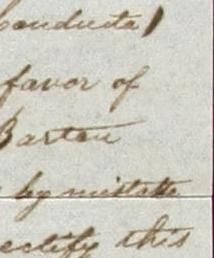 Conducta
favor of
Barton
by mistake
ectify this